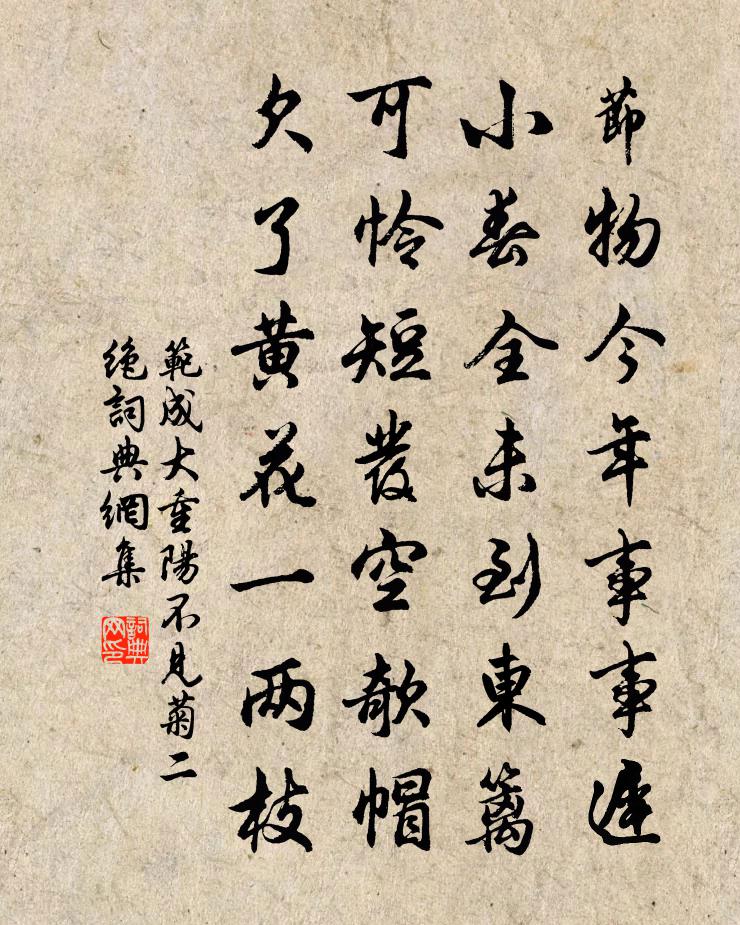 節物今年事事遲
小春全未到東籬
可怜短發空欹帽
欠了黄花一两枝
範成大重陽不見菊二
绝詞典網集
詞典网印